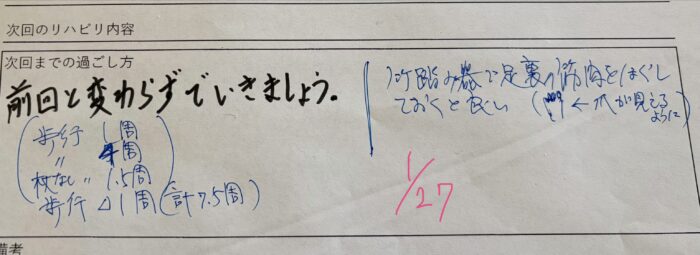 次回のリハビリ内容
次回までの過ごし方
前回と変わらずでいきましょう。
歩行 1周
〃 4周
杖なし〃 1.5周
歩行 1周(計7.5周)
踏み器で足裏の筋肉をほぐし
ておくと良い (←爪が見える
ように)
1/27
備考